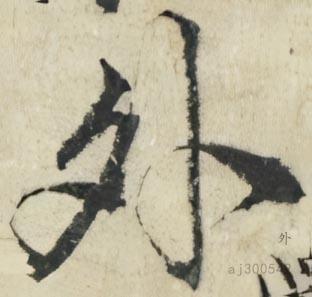 外
外
aj300542